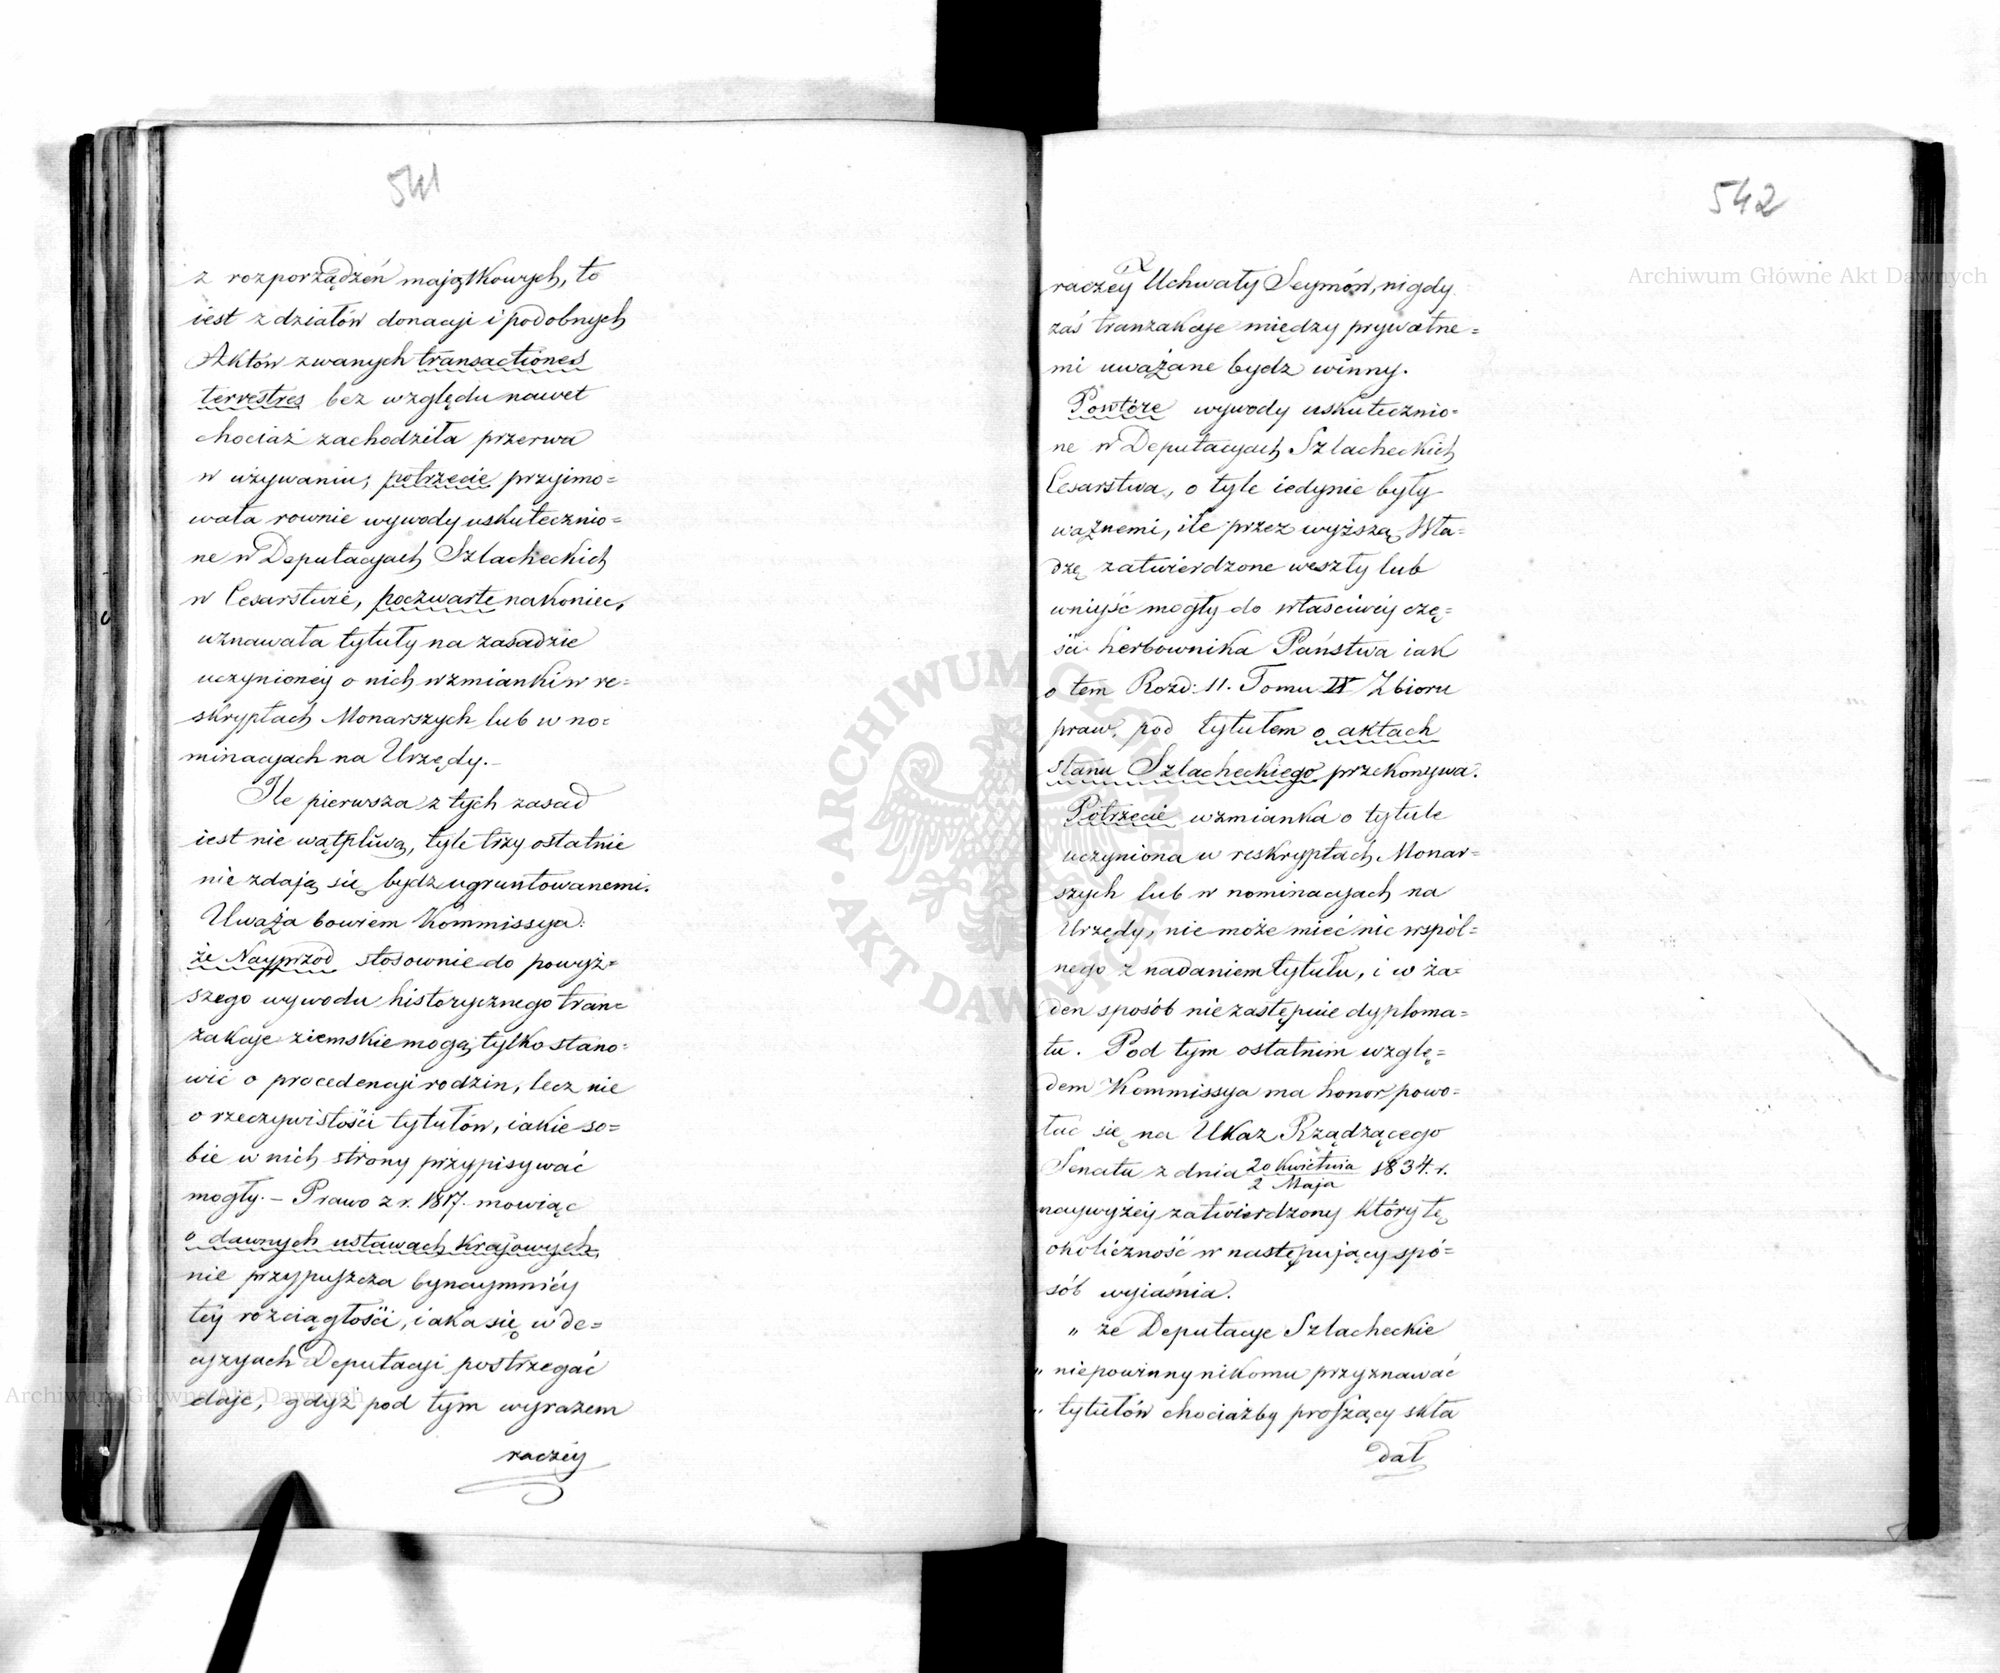 541
z rozporządzeń majątkowych, to
iest z działów donacji i podobnych
Aktów zwanych transactiones
terrestres bez względu nawet
chociaż zachodziła przerwa
w używaniu; potrzecie przyjmo=
wała rownie wywody uskutecznio=
ne w Deputacyach Szlacheckich
w Cesarstwie, poczwarte nakoniec,
uznawała tytuły na zasadzie
uczynioney o nich wzmianki w re=
skryptach Monarszych lub w no=
minacyach na Urzędy.
Ile pierwsza z tych zasad
iest nie wątpliwą, tyle trzy ostatnie
nie zdają się bydz ugruntowanemi.
Uważa bowiem Kommissya:
że Nayprzód stosownie do powyż=
szego wywodu historycznego tran=
zakcje ziemskie mogą tylko stano=
wić o procedencyi rodzin, lecz nie
o rzeczywistości tytułów, iakie so=
bie w nich strony przypisywać
mogły. – Prawo z r. 1817. mowiąc
o dawnych ustawach krajowych,
nie przypuszcza bynaymniey
tey rozciągłości, iaka się w de=
cyzyach Deputacyi postrzegać
daje, gdyż pod tym wyrazem
raczey
542
raczey Uchwały Seymów, nigdy
zaś tranzakcje między prywatne=
mi uważane bydz winny.
Powtóre wywody uskutecznio=
ne w Deputacyach Szlacheckich
Cesarstwa, o tyle iedynie były
ważnemi, ile przez wyższą Wła=
dzę zatwierdzone weszły lub
wniyść mogły do właściwey czę=
ści herbownika Państwa iak
o tem Rozd: 11. Tomu IX Zbioru
praw, pod tytułem o aktach
stanu Szlacheckiego przekonywa.
Potrzecie wzmianka o tytule
uczyniona w reskryptach Monar=
szych lub w nominacyach na
Urzędy, nie może mieć nic wspól=
nego z nadaniem tytułu, i w ża=
den sposób nie zastępuie dyploma=
tu. Pod tym ostatnim wzglę=
dem Kommissya ma honor powo=
łać się na Ukaz Rządzącego
Senatu z dnia 20 Kwietnia / 2 Maja 1834. r.
naywyżey zatwierdzony który tę
okoliczność w następujący spo=
sób wyiaśnia.
„ że Deputacye Szlacheckie
„ niepowinny nikomu przyznawać
„ tytułów chociażby proszący skła
dał
Archiwum Główne Akt Dawnych
Archiwum Główne Akt Dawnych
ARCHIWUM GŁÓWNE AKT DAWNYCH